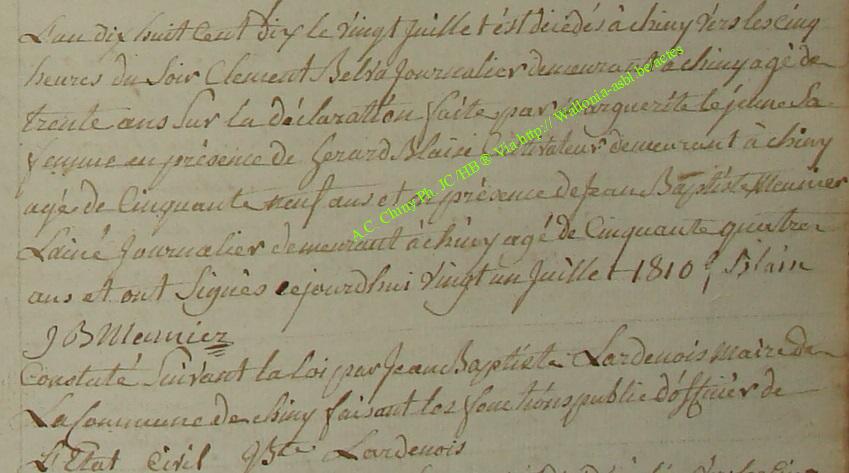 L'an dix huit Cent dix le vingt Juillet est décédés à chiny vers les cinq
heures du Soir Clement Belva Journalier demeurant à chiny agé de
trente ans Sur la déclaration faite par marguerite lejeune Sa
femme en présence de Gerard Blaise Cultivateur demeurant à chiny
agé de Cinquante neuf ans et en présence de Jean Baptiste Meunier
Lainé Journalier demeurant à chiny agé de Cinquante quatre
ans et ont Signés cejourdhui vingt un Juillet 1810 G Blain
J B Meunier
Constaté Suivant la loi par Jean Baptiste Lardenois maire de
La Commune de chiny faisant les fonctions public d'officier de
L'Etat Civil Lardenois
A.C. Chiny Ph. JC /HB ® Via http:// Wallonia-asbl be/actes